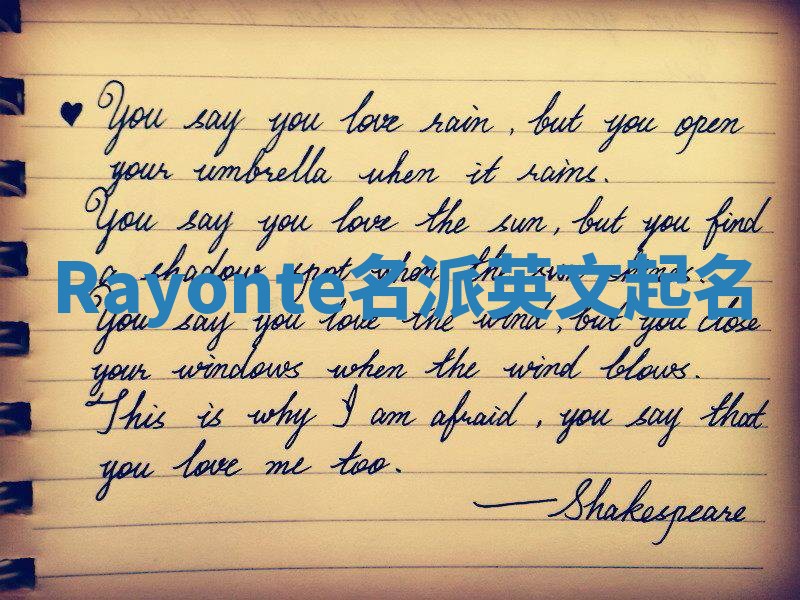 ♥ You say you love rain, but you open
your umbrella when it rains.
You say you love the sun, but you find
a shadow spot when the sun shines.
Rayonte名派英文起名
You say you love the wind, but you close
your windows when the wind blows.
This is why I am afraid, you say that
you love me too.
—Shakespeare